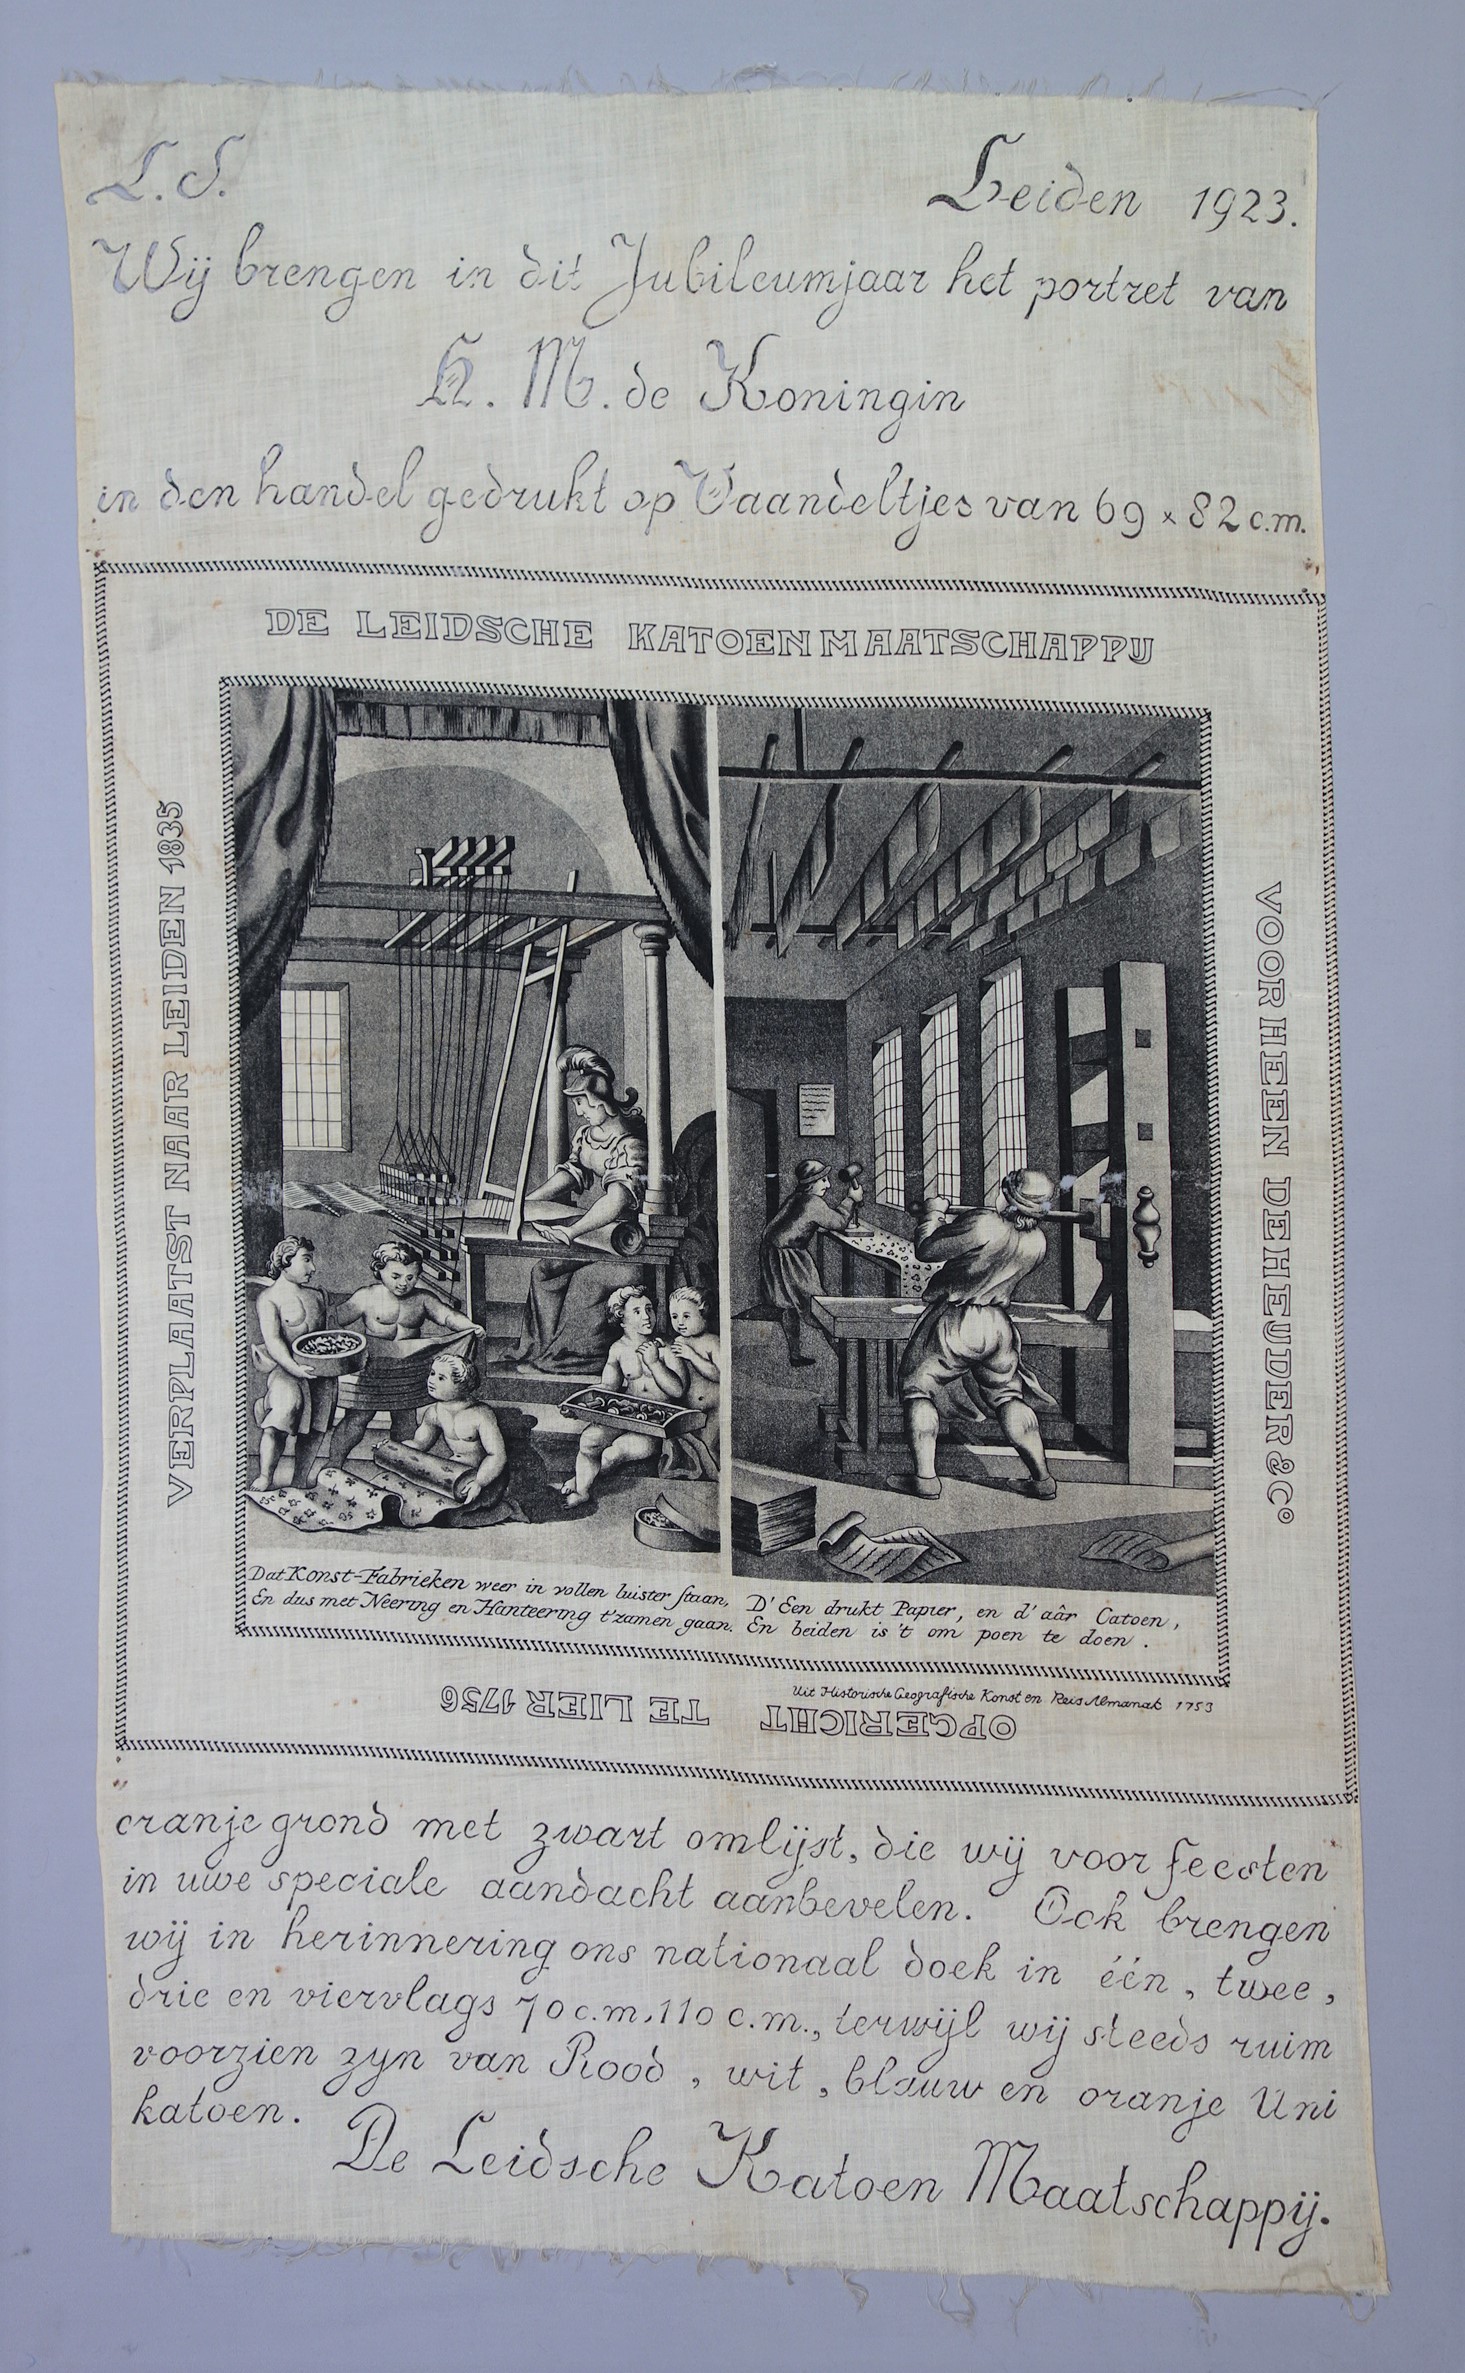 L.S.
Leiden 1923.
Wij brengen in dit Jubileumjaar het portret van
H. M. de Koningin
in den handel gedrukt op Vaandeltjes van 69 x 82 c.m.
DE LEIDSCHE KATOENMAATSCHAPPIJ
VOORHEEN DE HEYDER & Co
OPGERICHT TE LIER 1756
VERPLAATST NAAR LEIDEN 1835
Dat Konst-Fabrieken weer in vollen luister staan,
En dus met Neering en Hanteering t'zamen gaan.
D' Een drukt Papier, en d' aâr Catoen,
En beiden is 't om poen te doen.
Uit Historische Geografische Konst en Reis Almanak 1753
oranje grond met zwart omlijst, die wij voor feesten
in uwe speciale aandacht aanbevelen. Ook brengen
wij in herinnering ons nationaal doek in één, twee,
drie en viervlags 70 c.m. 110 c.m., terwijl wij steeds ruim
voorzien zyn van Rood, wit, blauw en oranje Uni
katoen.
De Leidsche Katoen Maatschappij.